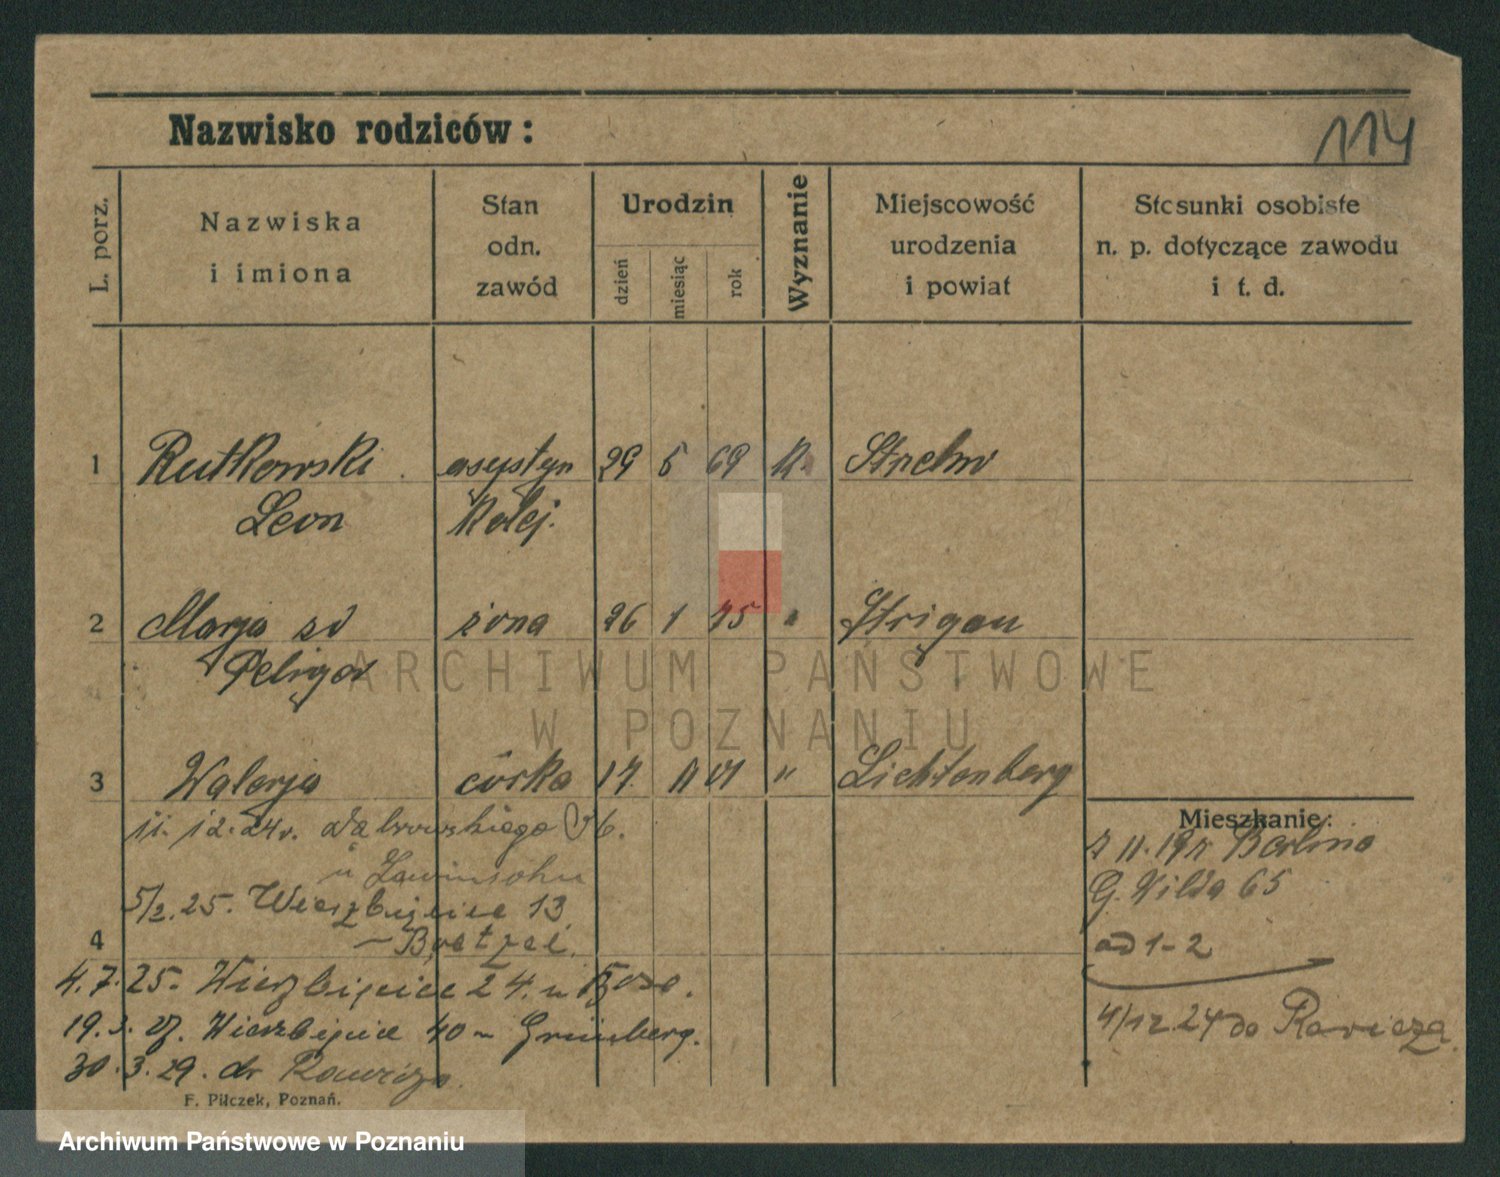 114
Nazwisko rodziców:
L. porz.
Nazwiska
i imiona
Stan
odn.
zawód
Urodzin
dzień
miesiąc
rok
Wyznanie
Miejscowość
urodzenia
i powiat
Stosunki osobiste
n. p. dotyczące zawodu
i t. d.
1 Rutkowski asystyn 29 5 69 K. Strelno
Leon Kolej.
2 Marja zd żona 26 1 75 " Strigau
Peligov
ARCHIWUM PAŃSTWOWE
W POZNANIU
3 Walerja córka 17. 11 01 " Lichtenberg
11. 12. 24r. Dąbrowskiego 36.
u
5/2. 25. Wierzbięcice 13
4
4. 7. 25. Wierzbięcice 24. u
19. 3. 27. Wierzbięcice 40 u Grünberg.
30. 3. 29. do Rawicza.
Mieszkanie:
z 11. 19 z Berlina
G. Wilda 65
ad 1-2
4/12. 24 do Rawicza
F. Pilczek, Poznań.
Archiwum Państwowe w Poznaniu